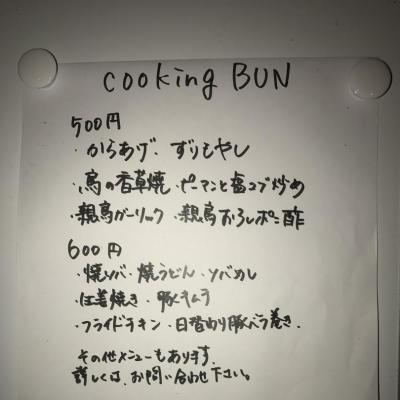 cooking BUN
500円
・からあげ ・ずりもやし
・鳥の香草焼 ・ピーマンと塩コブ炒め
・親鳥ガーリック ・親鳥おろしポン酢
600円
・焼ソバ ・焼うどん ・ソバめし
・生姜焼き ・豚キムチ
・フライドチキン ・日替わり豚バラ巻き
その他メニューもあります。
詳しくは、お問い合わせ下さい。